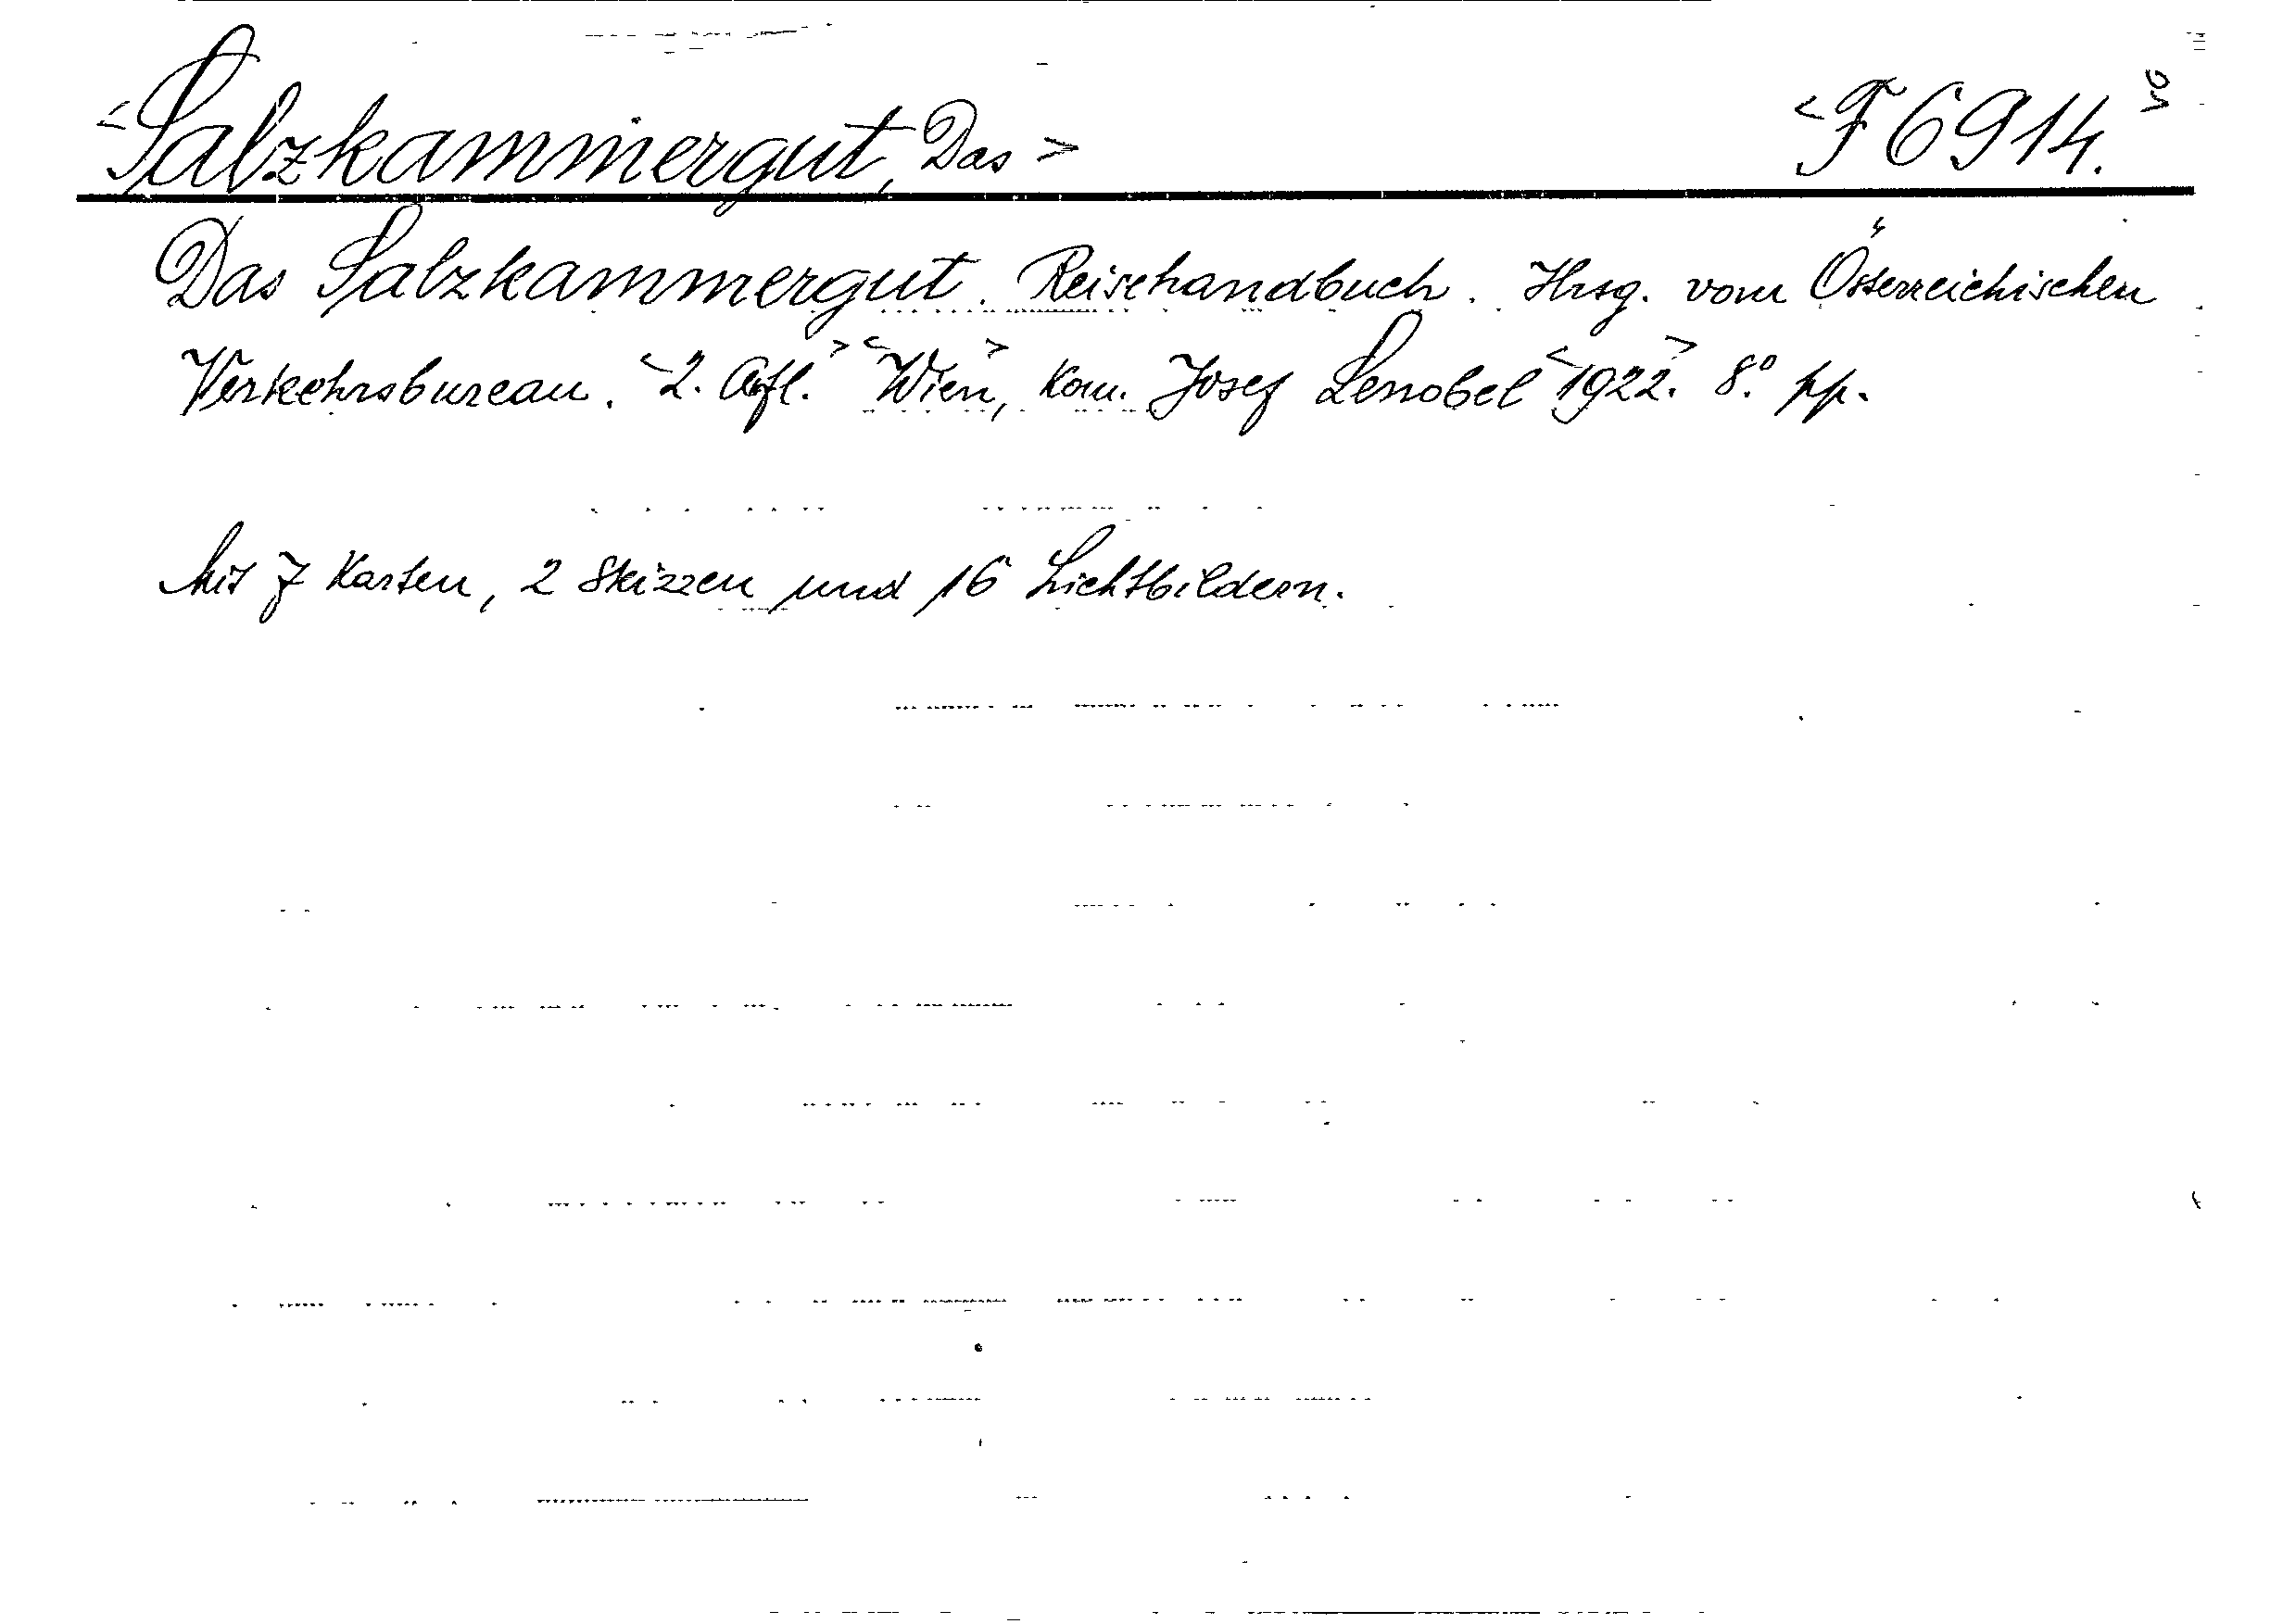 <Salzkammergut, Das> <F 6914.>
Das Salzkammergut. Reisehandbuch. Hrsg. vom Österreichischen
Verkehrsbureau. <2. Aufl.> <Wien>, Kom. Josef Lenobel <1922.> 8.° pp.
Mit 7 Karten, 2 Skizzen und 16 Lichtbildern.